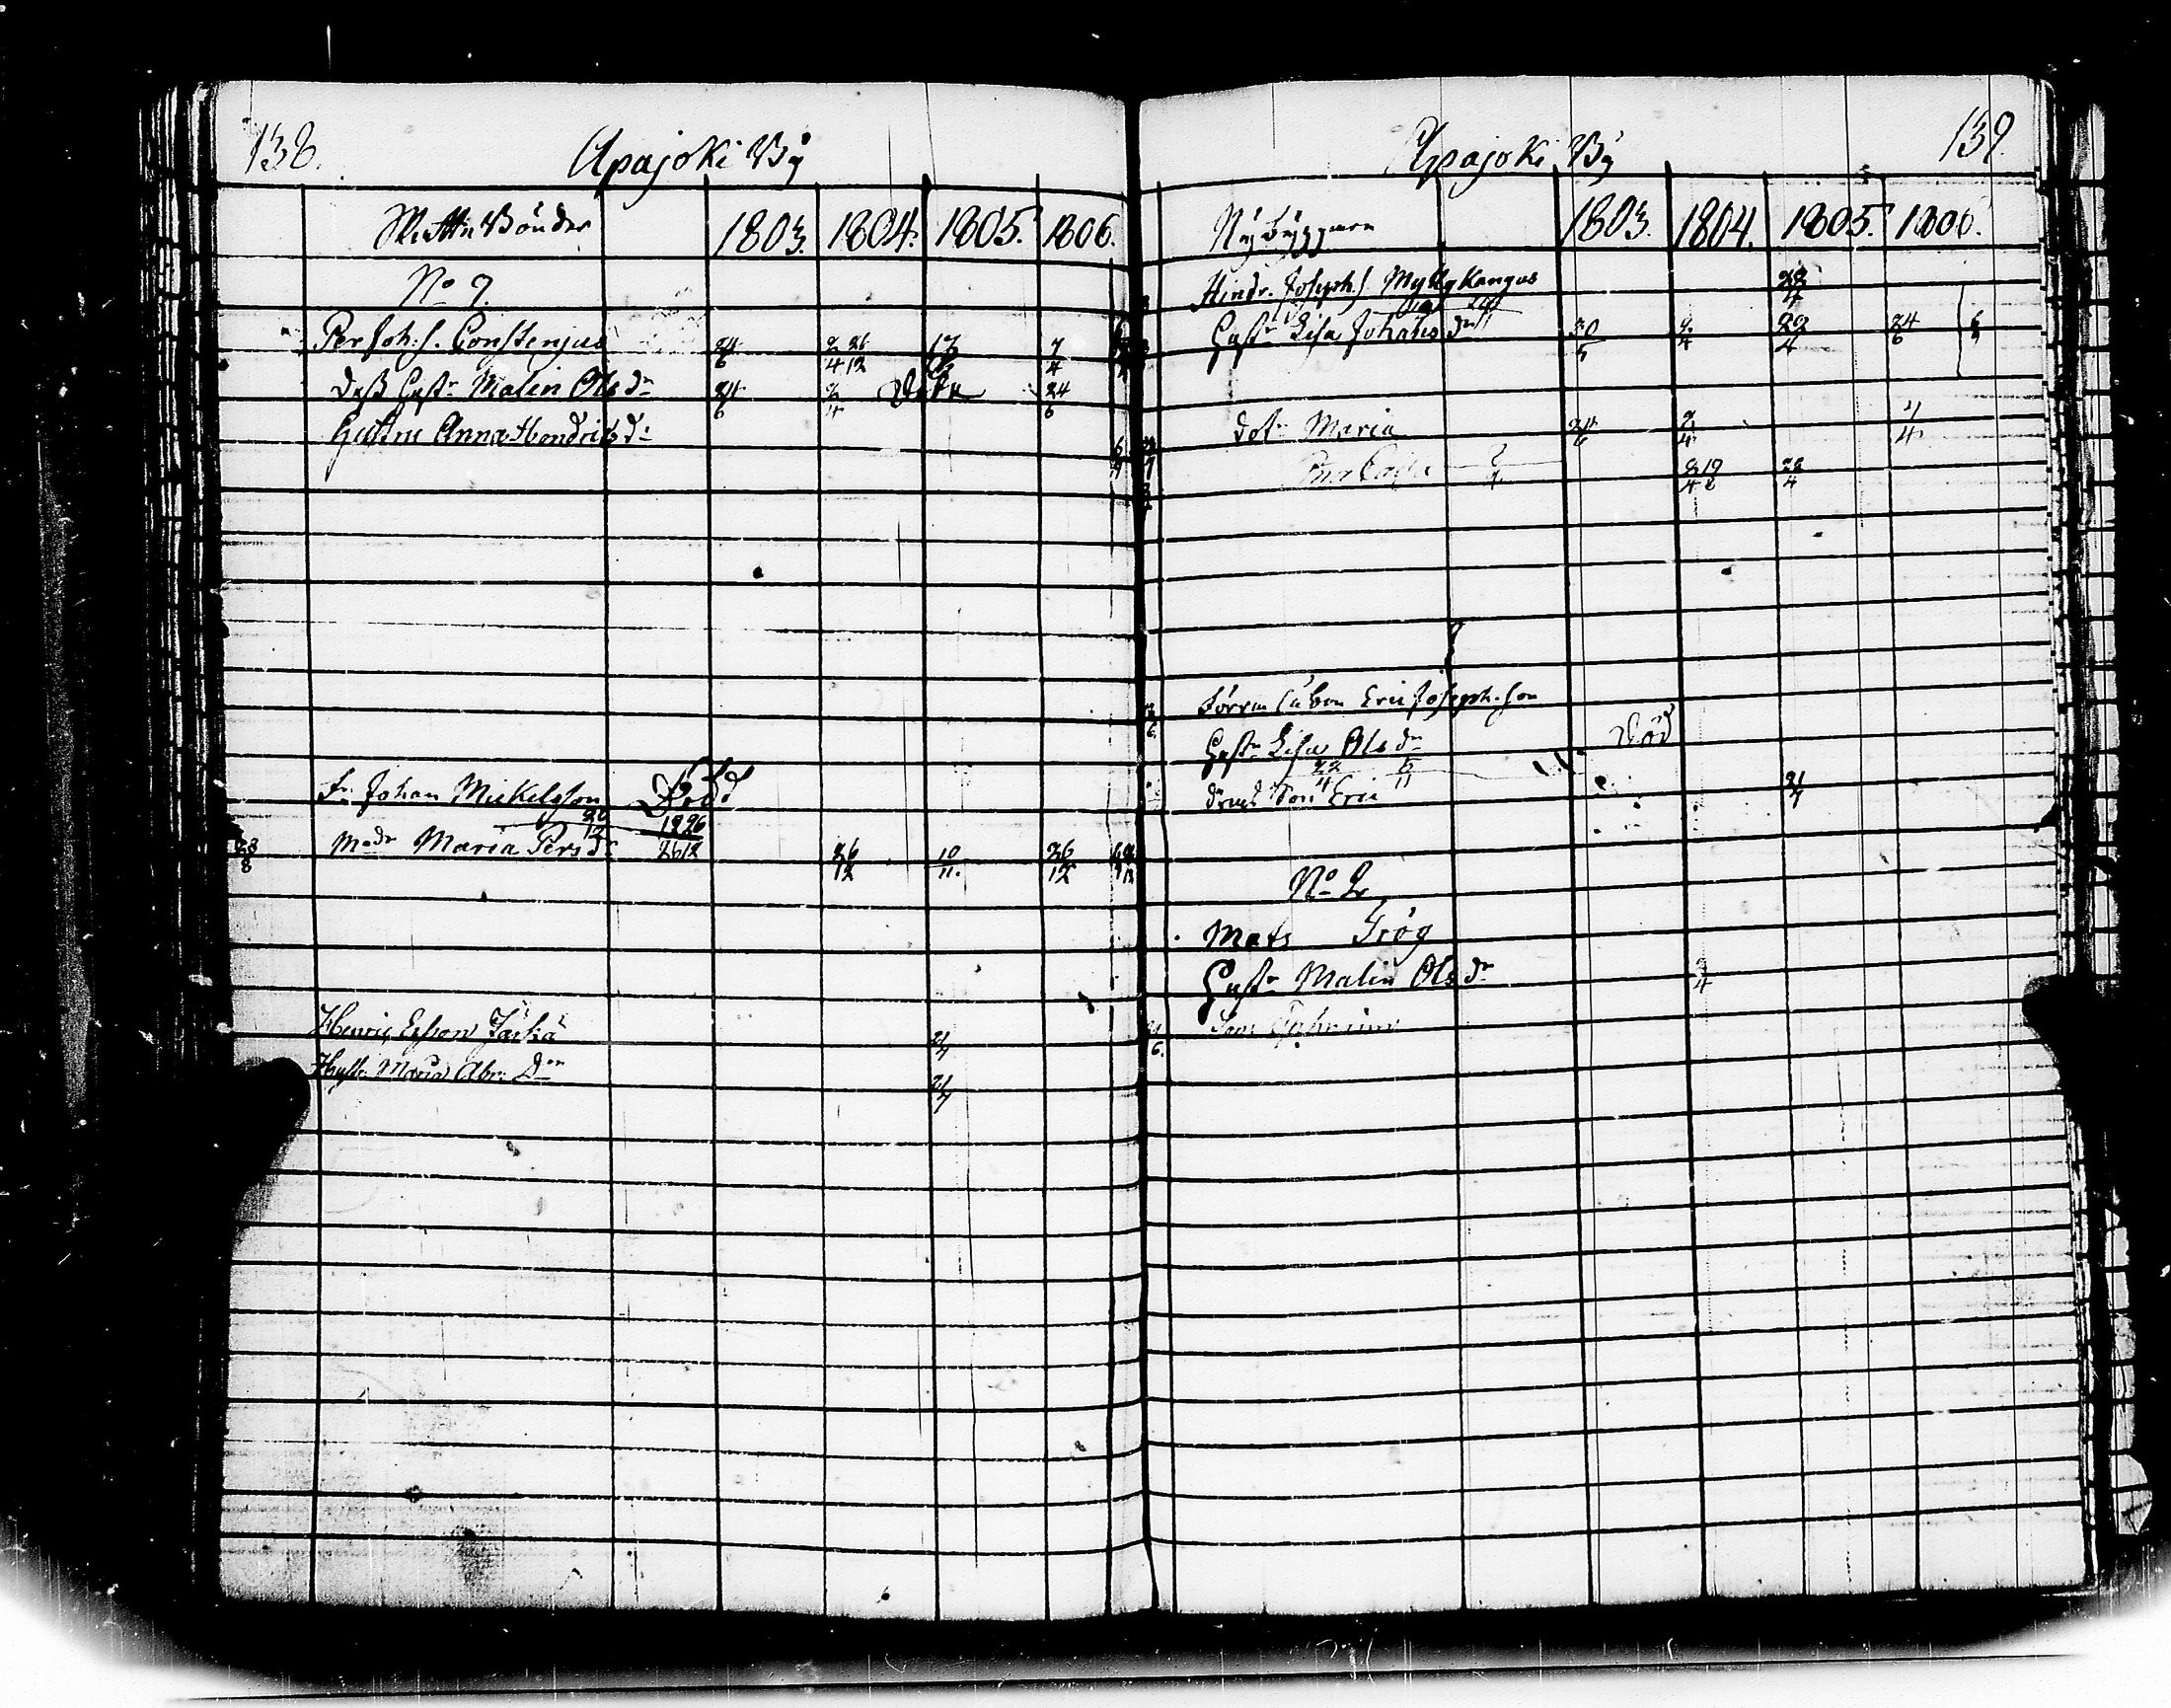 138.
Apajoki By
Skatte Bönder 1803. 1804. 1805. 1806.
No 7.
Per Joh. s. Constenius 24/6 2/4 26/12 7/4
Dess Hust. Malin Ols dr 24/6 2/4 24/6
Hustru Anna Hendrics dr
Fr. Johan Mickelsson Död
20/12 1826
Modr Maria Pers dr 26 12 26/12 10/11. 26/12
Henric Ersson Jäskä 21/7
Hustr. Maria Abr. Dr 21/7
139
Apajoki By
Nybyggare 1803. 1804. 1805. 1806.
Hindr. Joseph. s Myllykangas 22/4
Hustr Lisa Johans dr 30/5 2/4 22/4 24/6
Dotr Maria 24/6 2/4 4/4
2/4 19/8 22/4
Eric Joseph. son
Hustr Lisa Ols dr Död
22/4 5/11
Son Eric 21/7
No 2
Mats Trög
Hustr Malin Ols dr 2/4
Son Ephraim